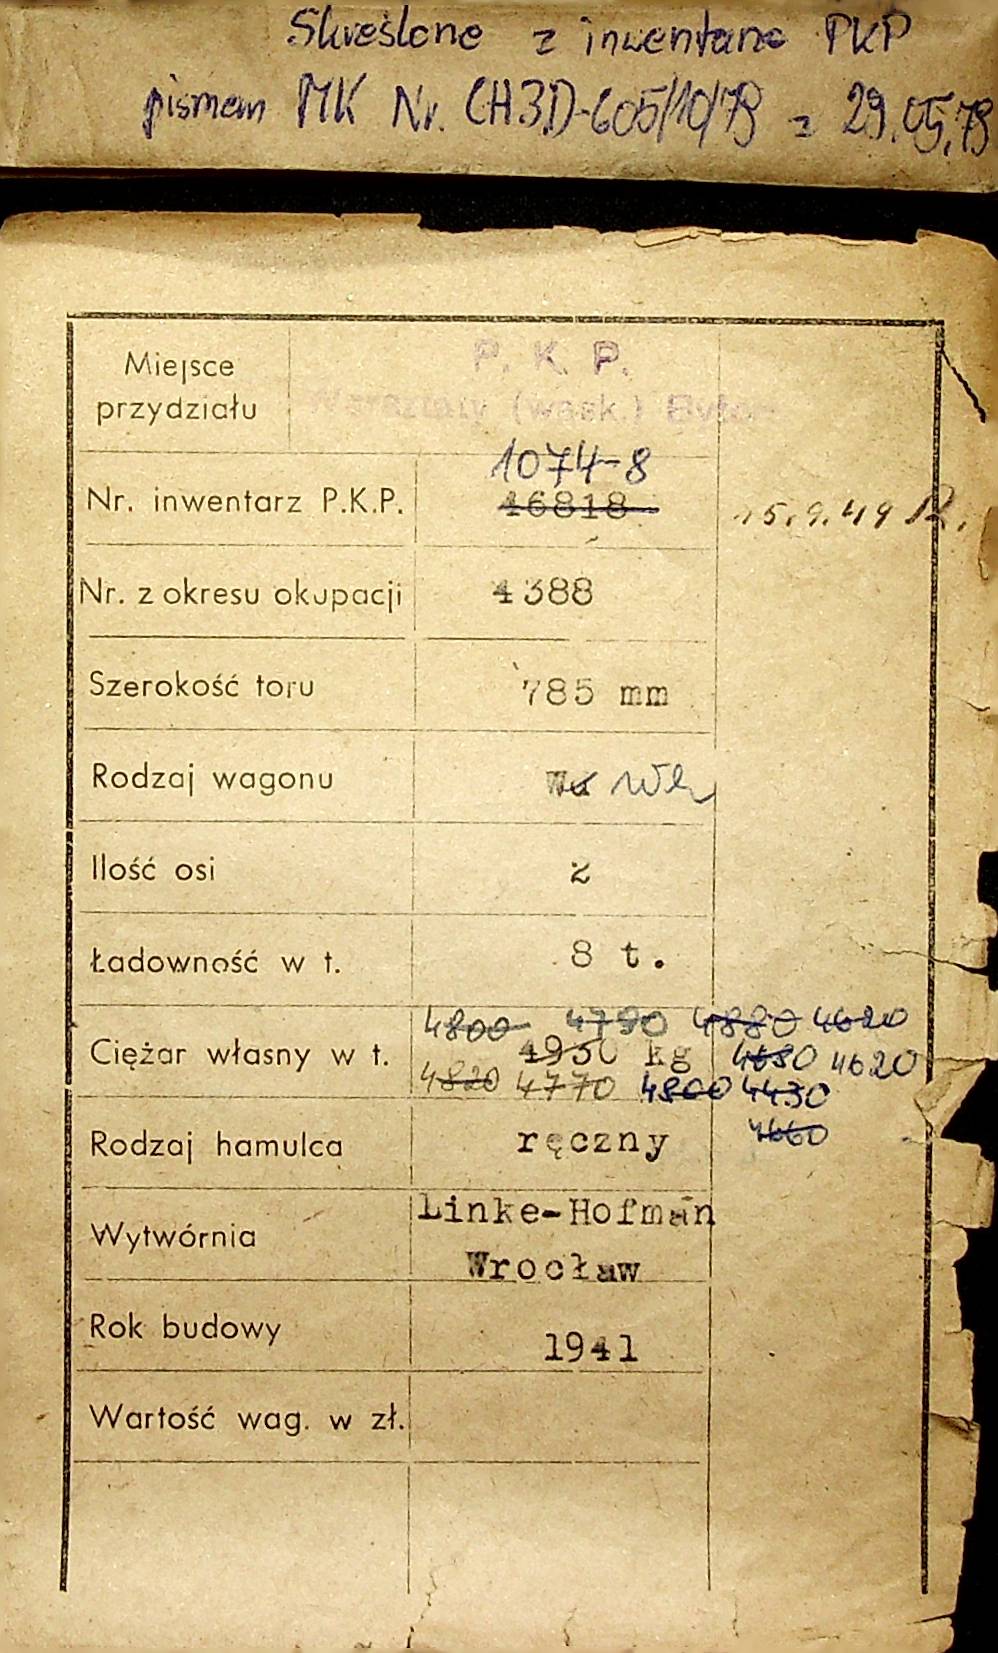 Skreślone z inwentarza PKP
pismem MK Nr. CH3D-605/10/79 z 29.05.79
Miejsce przydziału
P. K. P.
Warsztaty (wąsk.) Bytom
1074-8
Nr. inwentarz P.K.P. 46818 15.9.49
Nr. z okresu okupacji 4388
Szerokość toru 785 mm
Rodzaj wagonu
Ilość osi 2
Ładowność w t. 8 t.
4800 4790 4880 4620
Ciężar własny w t. 4950 kg 4680 4620
4820 4770 4800 4430
Rodzaj hamulca ręczny 4660
Wytwórnia Linke-Hofman
Wrocław
Rok budowy 1941
Wartość wag. w zł.